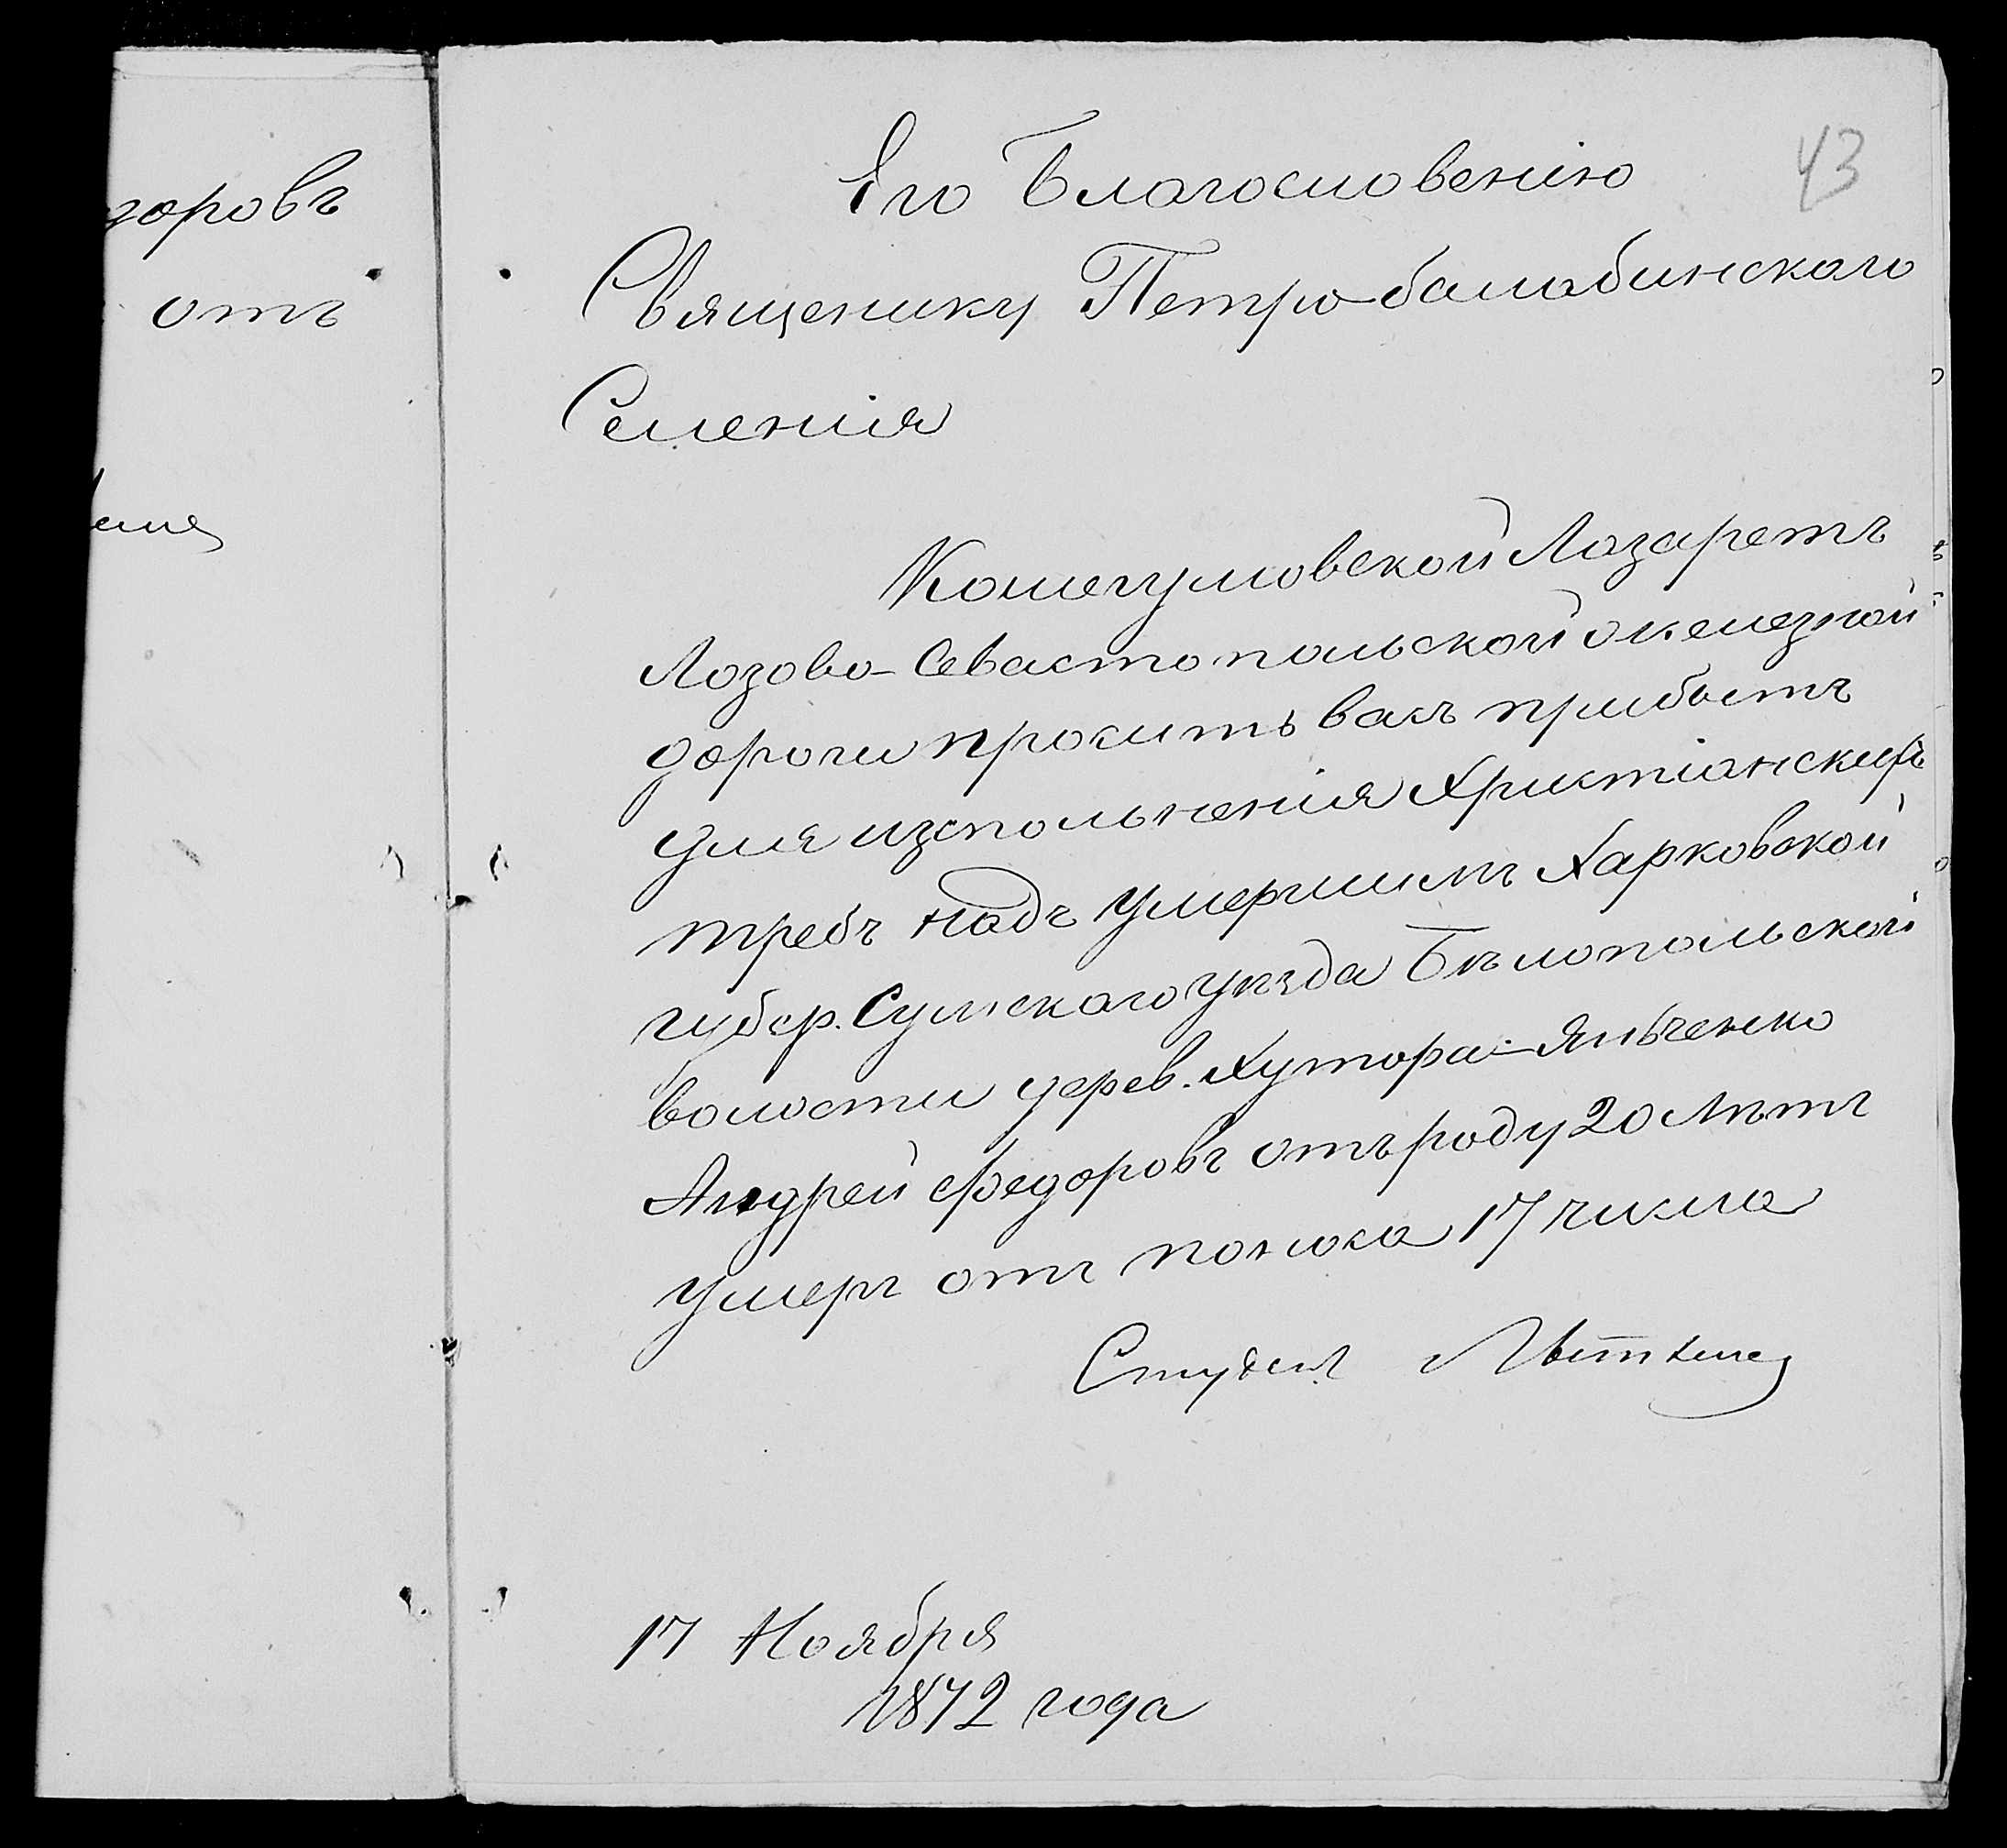 43
доровъ
отъ
Его Благословенію
Священику Петро-балабинского
Селенія
Кошегумовской Лозаретъ
Лозово-Севастопольской железной
дороги проситъ васъ прибыть
для изспольненія Христіанскихъ
требъ надъ умершимъ Харковской
губер. Сумскаго уѣзда Бѣлопольской
волости дерев. Хутора-Яньченко
Андрей Федоровъ отъ роду 20 лѣтъ
умеръ отъ поноса 17 числа
Студен.
17 Ноября
1872 года